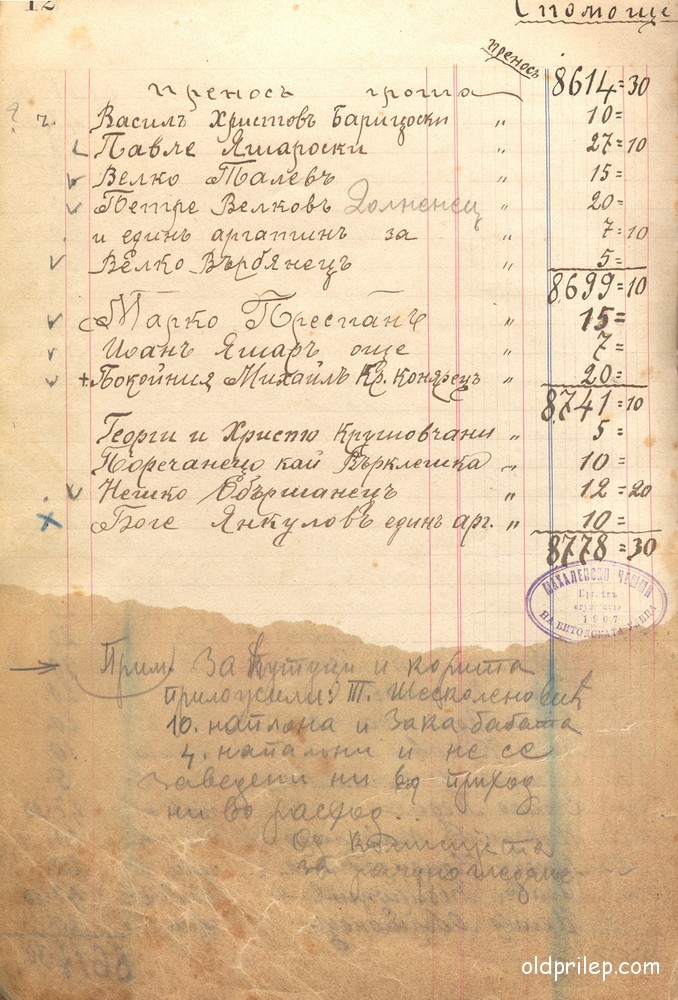 12
Спомоще
преносъ
преносъ гроша 8614=30
Василъ Христовъ Барицоски „ 10=
Павле Яшароски „ 27=10
Велко Талевъ „ 15=
Петре Велковъ Долненец „ 20=
и единъ аргатинъ за „ 7=10
Велко Върбянецъ „ 5=
8699=10
Марко Преспанъ „ 15=
Иванъ Яшаръ още „ 7=
+Покойния Михаилъ Кр. Конярецъ „ 20=
8741=10
Георги и Христю Крушовчани „ 5=
Поречанецо кай Върклешка „ 10=
Нешко Обършанецъ „ 12=20
Боге Янкуловъ единъ арг. „ 10=
8778=30
МАХАЛЕНСКИ ЧЕШМИ
1907
НА БИТОЛСКАТА УЛИЦА
Прим. За Кутуци и корита
приложили: Т.
10. наплона и Зака бабата
4. напалони и не се
заведени ни во приход
ни во расход..
От Комищета
за рачуногледание
oldprilep.com